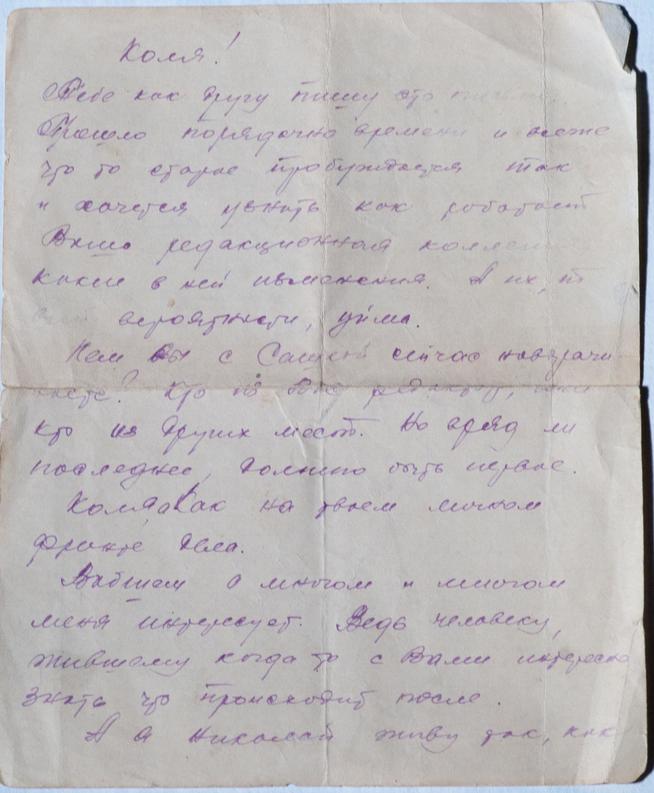 Коля!
Тебе как другу пишу это
Прошло порядочно времени и все же
что то старое пробуждается так
и хочется узнать как работает
Ваша редакционная
какие в ней изменения. А их,
вероятности, уйма.
Кем вы с Сашкой сейчас
Кто из Вас
кто из других мест. Но вряд ли
последнее, должно быть первое.
Коля, Как на твоем личном
фронте дела.
Вобщем о многом и многом
меня интересует. Ведь человеку,
жившему когда то с Вами интересно
знать что происходит после.
А я Николай живу так, как